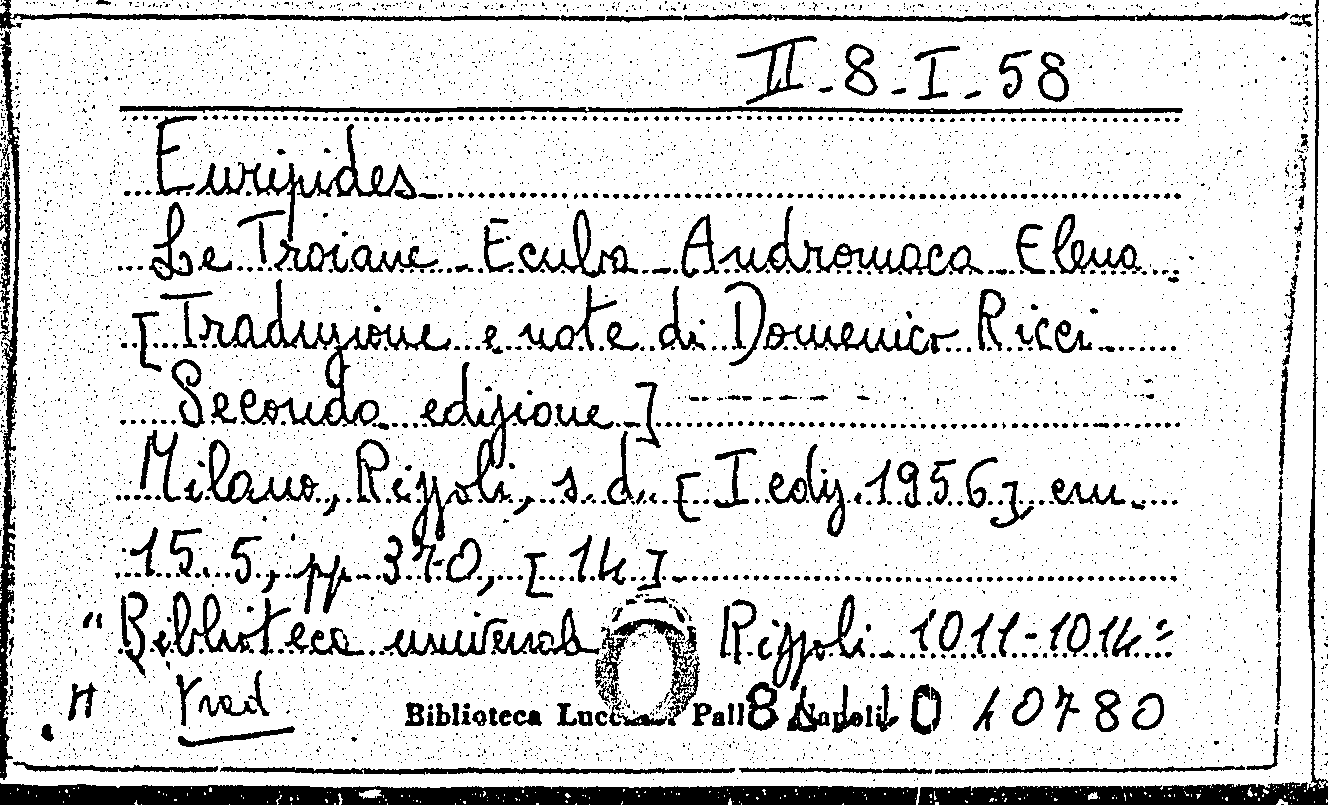 II-8-I-58
Euripides
Le Troiane - Ecuba - Andromaca - Elena.
[Traduzione e note di Domenico Ricci
Seconda edizione]
Milano, Rizzoli, s.d. [I ediz. 1956], cm.
15.5, pp. 370, [14]
"Biblioteca universale Rizzoli 1011-1014"
H Trad
Biblioteca Napoli 10780